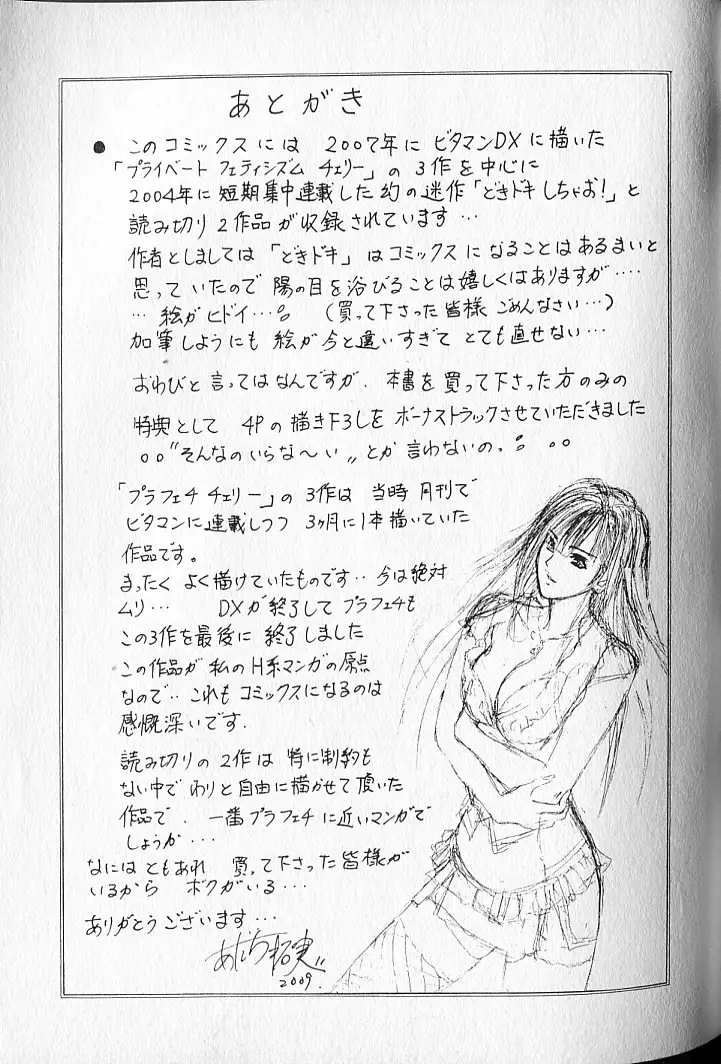 あとがき
● このコミックスには 2007年に ビタマンDXに描いた
「プライベート フェティシズム チェリー」の 3作を中心に
2004年に 短期集中連載した 約の迷作「どきドキしちゃお!」と
読み切り 2作品が収録されています…
作者としましては「どきドキ」はコミックスになることはあるまいと
思っていたので 陽の目を浴びることは嬉しくはありますが‥‥
… 絵がヒドイ…。 (買って下さった皆様 ごめんなさい…)
加筆しようにも 絵が今と違いすぎて とても直せない…
おわびと言ってはなんですが、本書を買って下さった方のみの
特典として 4Pの描き下3しを ボーナストラックさせていただきました
。。"そんなのいらな〜い〃とか言わないの。
「プラフェチ チェリー」の 3作は 当時 月刊で
ビタマンに連載しつつ 3ヶ月に1本描いていた
作品です。
まったく よく描けていたものです‥ 今は絶対
ムリ… DXが終了して プラフェチも
この3作を最後に 終了しました
この作品が 私のH系マンガの原点
なので‥ これも コミックスになるのは
感慨深いです.
読み切りの 2作は 特に制約も
ない中で わりと自由に描かせて頂いた
作品で、一番プラフェチに近いマンガで
しょうか…
なにはともあれ 買って下さった皆様が
いるから ボクがいる…
ありがとうございます…
2009.